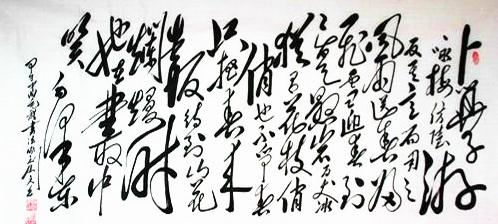 卜算子
咏梅 读陆游
反其意而用之
风雨送春归
飞雪迎春到
已是悬崖百丈冰
犹有花枝俏
俏也不争春
只把春来
报待到山花
烂熳时
她在丛中
笑